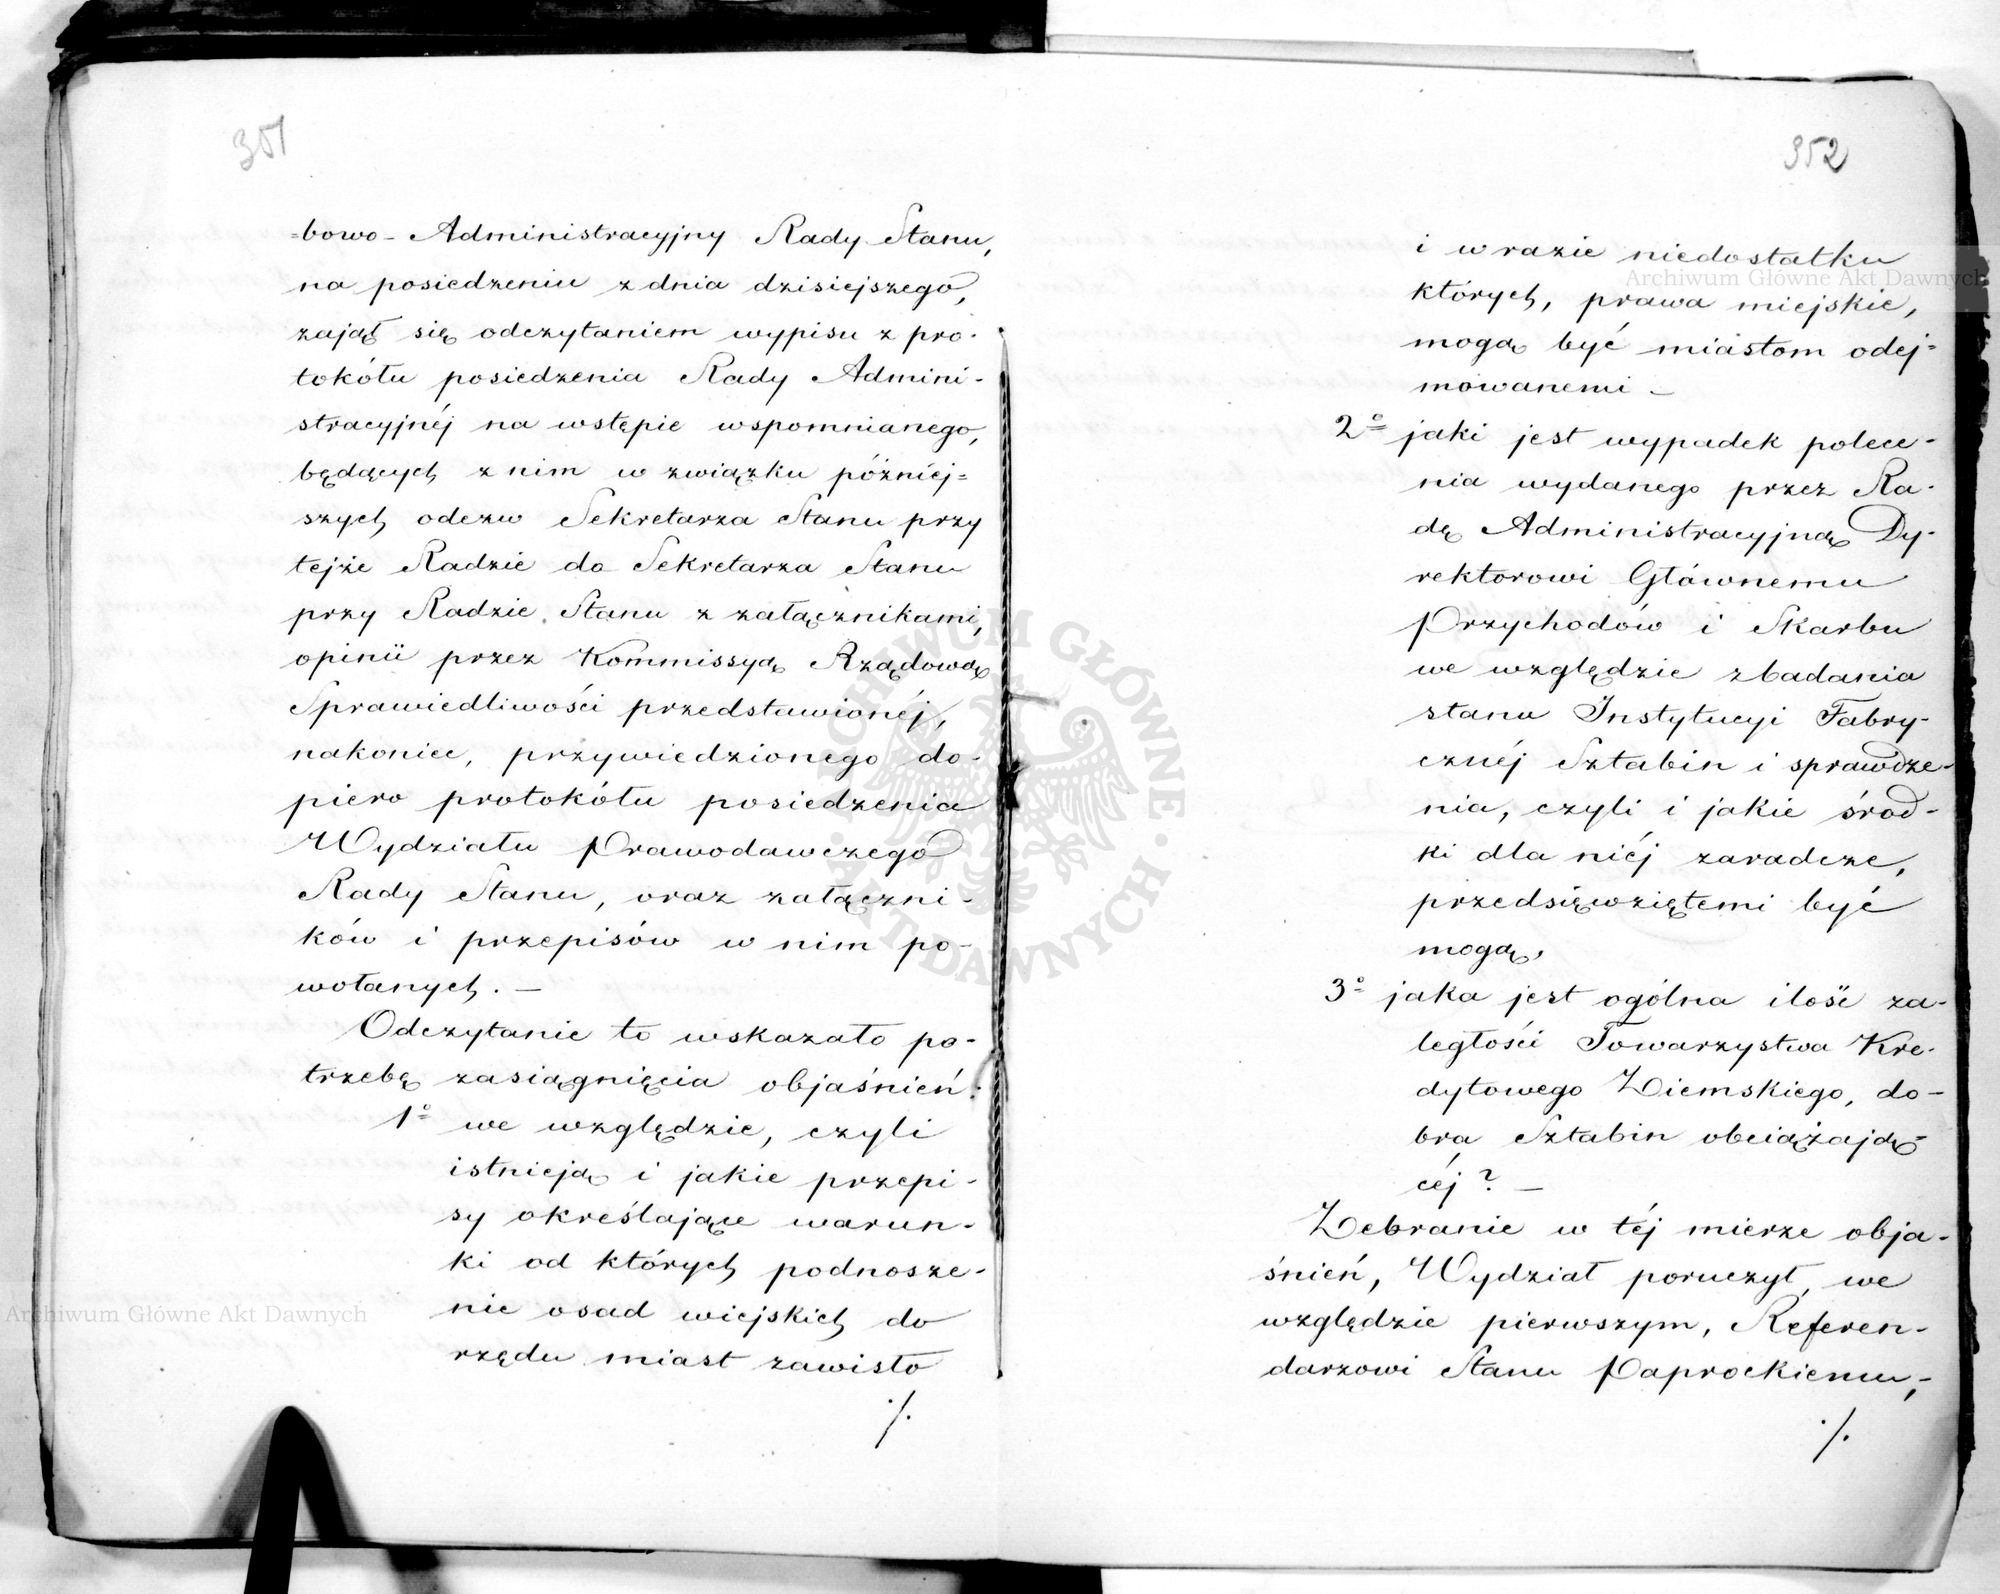 351
=bowo- Administracyjny Rady Stanu,
na posiedzeniu z dnia dzisiejszego,
zajął się odczytaniem wypisu z pro-
tokółu posiedzenia Rady Admini-
stracyjnéj na wstępie wspomnianego,
będących z nim w związku póżniej=
szych odezw Sekretarza Stanu przy
tejże Radzie do Sekretarza Stanu
przy Radzie Stanu z załącznikami,
opinii przez Kommissyą Rządową
Sprawiedliwości przedstawionéj,
nakoniec, przywiedzionego do-
piero protokółu posiedzenia
Wydziału Prawodawczego
Rady Stanu, oraz załączni-
ków i przepisów w nim po-
wołanych. —
Odczytanie to wskazało po-
trzebę zasiągnięcia objaśnień:
1º we względzie, czyli
istnieją i jakie przepi-
sy określające warun-
ki od których podnosze-
nie osad wiejskich do
rzędu miast zawisło
./.
352
i w razie niedostatku
których, prawa miejskie,
mogą być miastom odej=
mowanemi —
2º jaki jest wypadek polece-
nia wydanego przez Ra-
dę Administracyjną Dy-
rektorowi Głównemu
Przychodów i Skarbu
we względzie zbadania
stanu Instytucyi Fabry-
cznéj Sztabin i sprawdze-
nia, czyli i jakie środ-
ki dla niéj zaradcze,
przedsięwziętemi być
mogą,
3º jaka jest ogólna ilość za-
ległości Towarzystwa Kre-
dytowego Ziemskiego, do-
bra Sztabin obciążają-
céj? —
Zebranie w téj mierze obja-
śnień, Wydział poruczył, we
względzie pierwszym, Referen-
darzowi Stanu Paprockiemu,-
./.
Archiwum Główne Akt Dawnych
Archiwum Główne Akt Dawnych
ARCHIWUM GŁÓWNE · AKT DAWNYCH ·